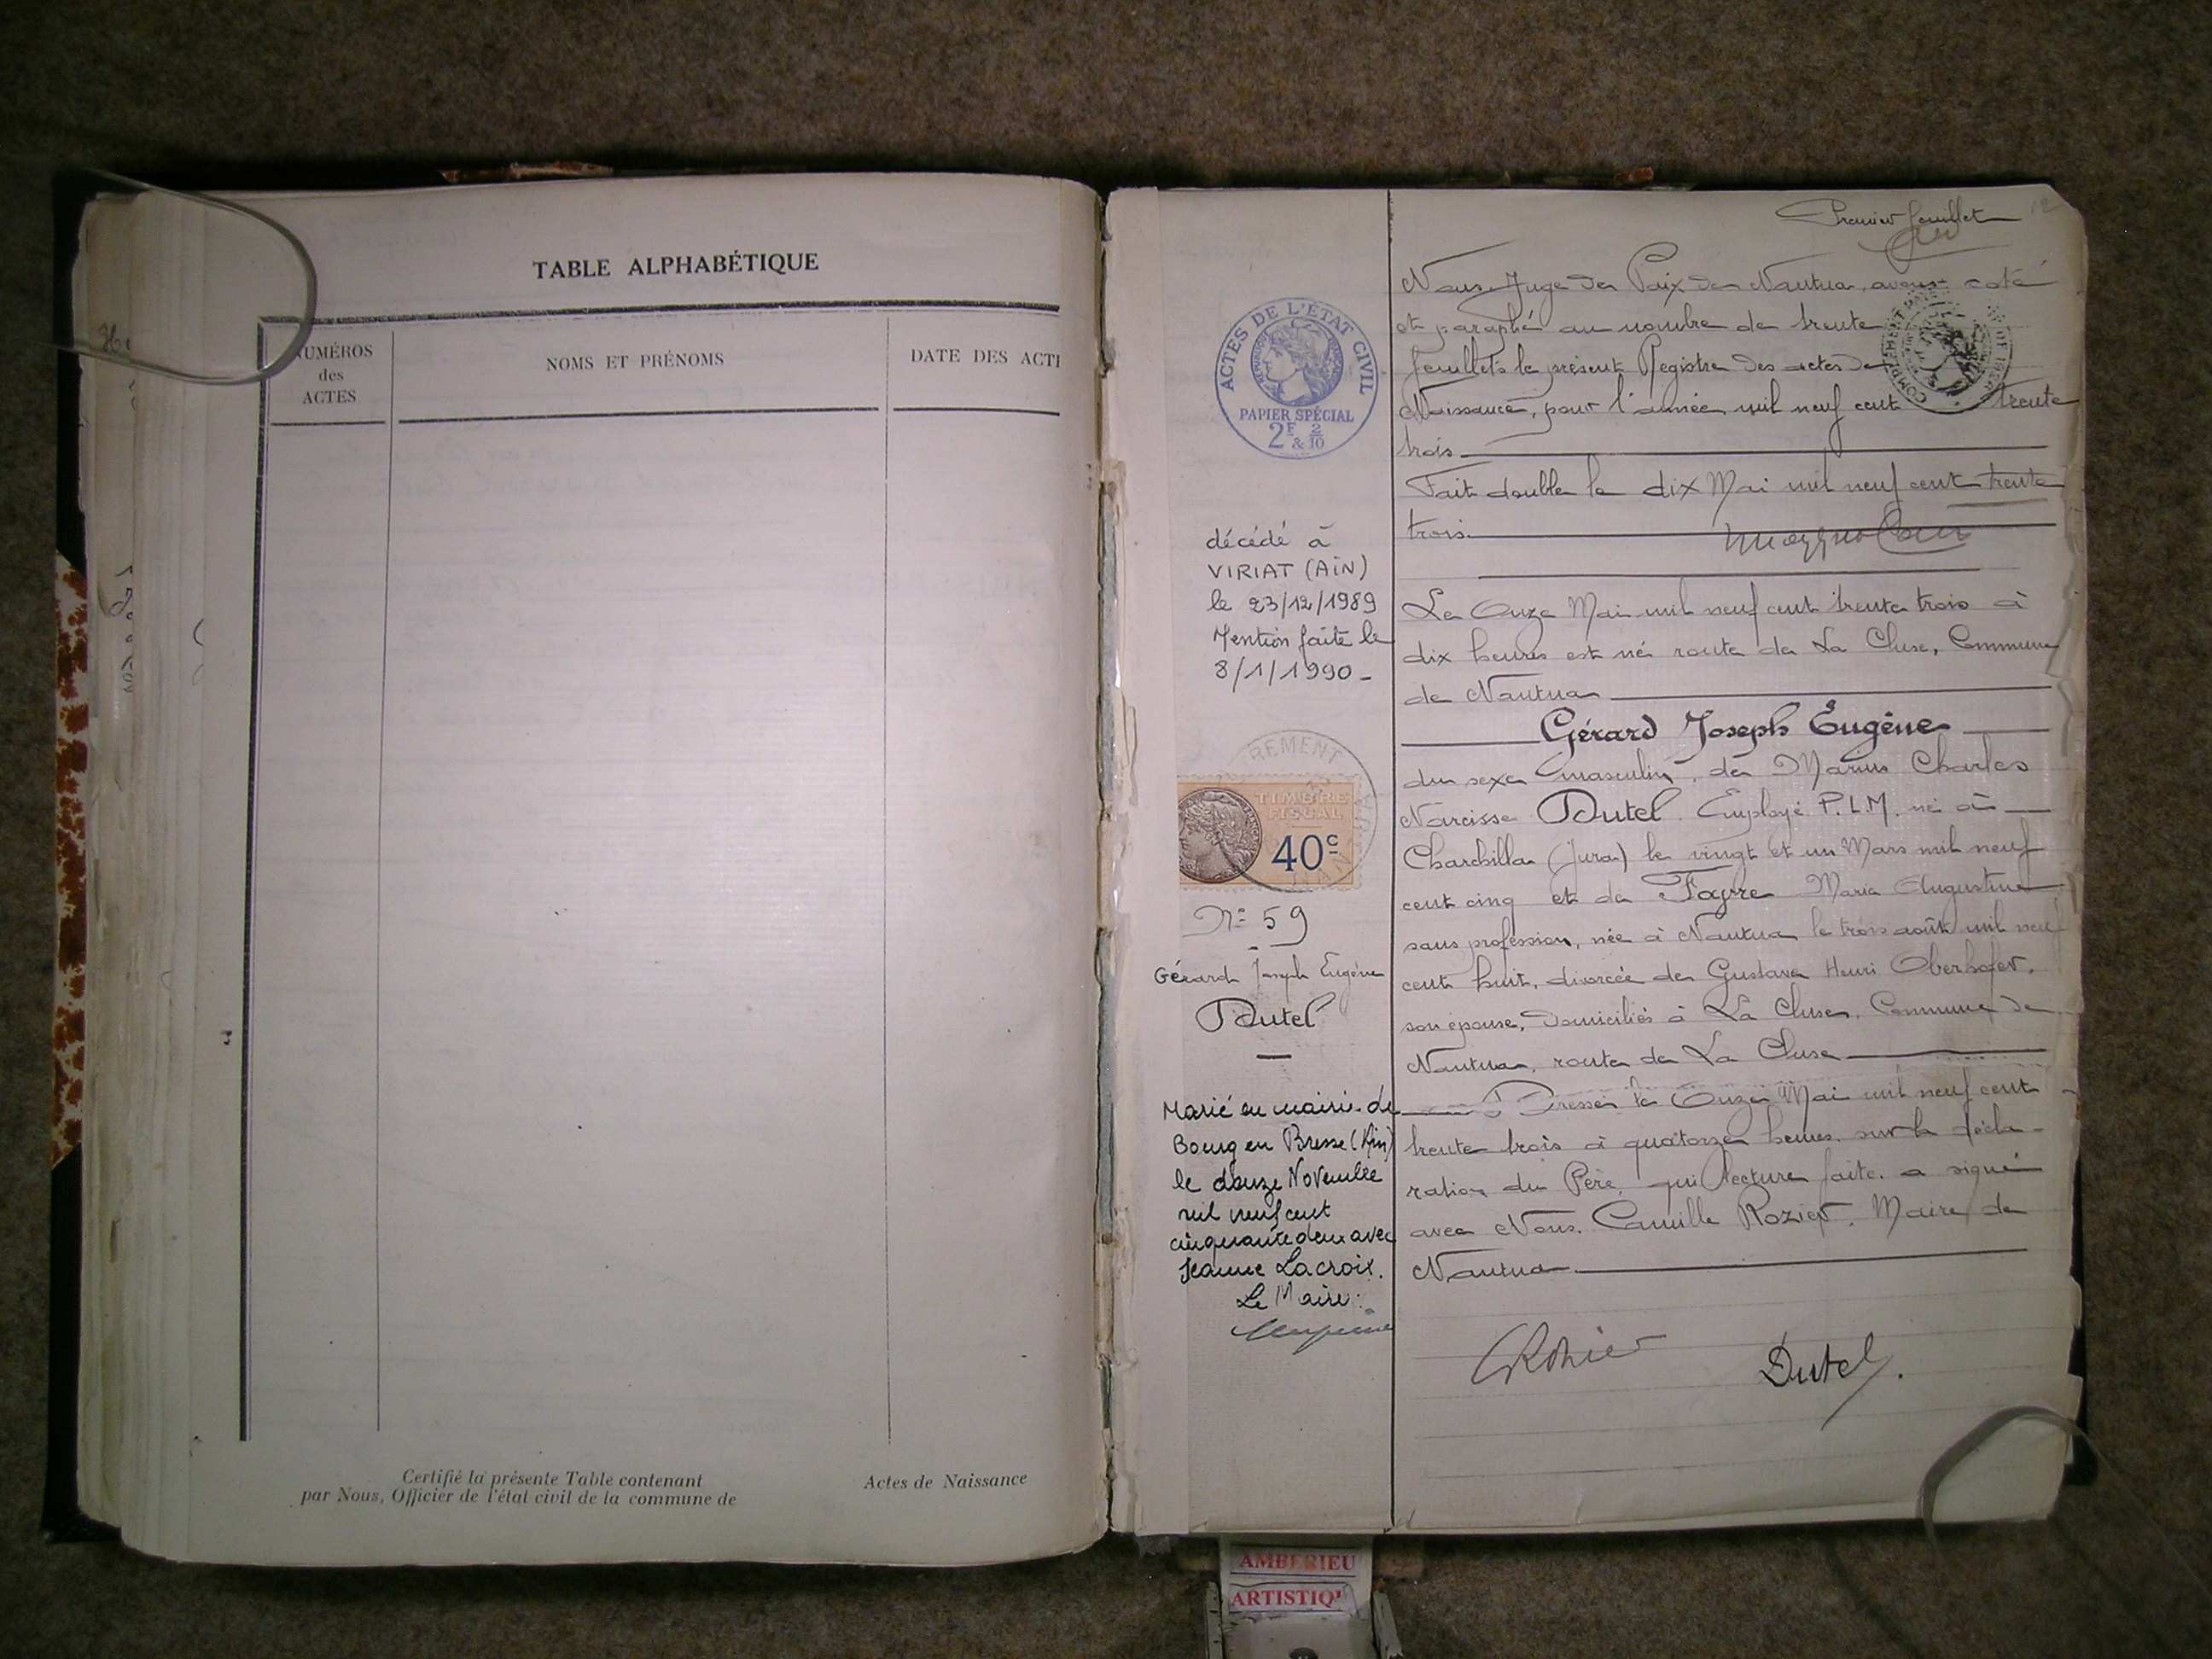 TABLE ALPHABÉTIQUE
NUMÉROS
des
ACTES
NOMS ET PRÉNOMS
DATE DES ACTE
Certifié la présente Table contenant
Actes de Naissance
par Nous, Officier de l'état civil de la commune de
ACTES DE L'ÉTAT CIVIL
PAPIER SPÉCIAL
2F & 2/10
décédé à
VIRIAT (AiN)
le 23/12/1989
Mention faite le
8/1/1990 -
REMENT
TIMBRE
FISCAL
40c
N° 59
Gérard Joseph Eugène
Dutel
Marié en mairie de
Bourg en Bresse (Ain)
le douze Novembre
mil neuf cent
cinquante deux avec
Jeanne Lacroix.
Le Maire:
Premier feuillet
Nous Juge de Paix de Nantua, avons coté
et paraphé au nombre de trente
feuillets le présent Registre des actes de
Naissance, pour l'année mil neuf cent trente
trois.
Fait double le dix Mai mil neuf cent trente
trois.
Le Onze Mai mil neuf cent trente trois à
dix heures est né route de La Cluse, Commune
de Nantua
Gérard Joseph Eugène
du sexe masculin, de Marius Charles
Narcisse Dutel. Employé P.L.M. né à
Charchilla (Jura) le vingt et un Mars mil neuf
cent cinq et de Fayre Maria Augustine
sans profession, née à Nantua le trois août mil neuf
cent huit, divorcée de Gustave Henri Oberhofer.
son épouse, Domiciliés à La Cluse. Commune de
Nantua, route de La Cluse
Dressé le Onze Mai mil neuf cent
trente trois à quatorze heures. sur la décla-
ration du Père, qui lecture faite. a signé
avec Nous. Camille Rozier. Maire de
Nantua.
CRozier
Dutel.
AMBERIEU
ARTISTIQU